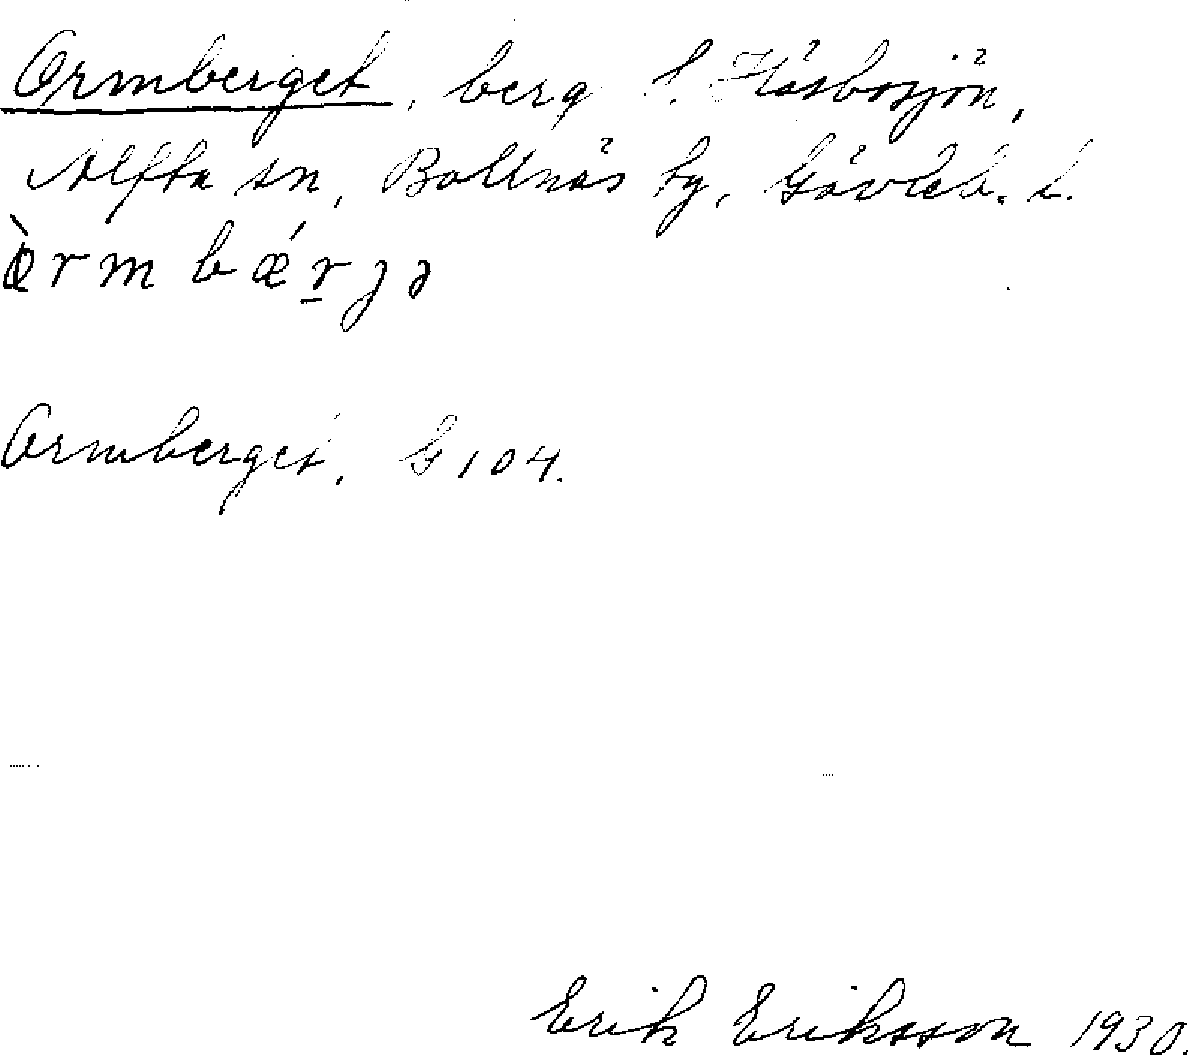 Ormberget, berg i Håsbosjön,
Alfta sn, Bollnäs tg, Gävleb. l.
òrmbǽr̲ȷə
Ormberget, G 104.
Erik Eriksson 1930.